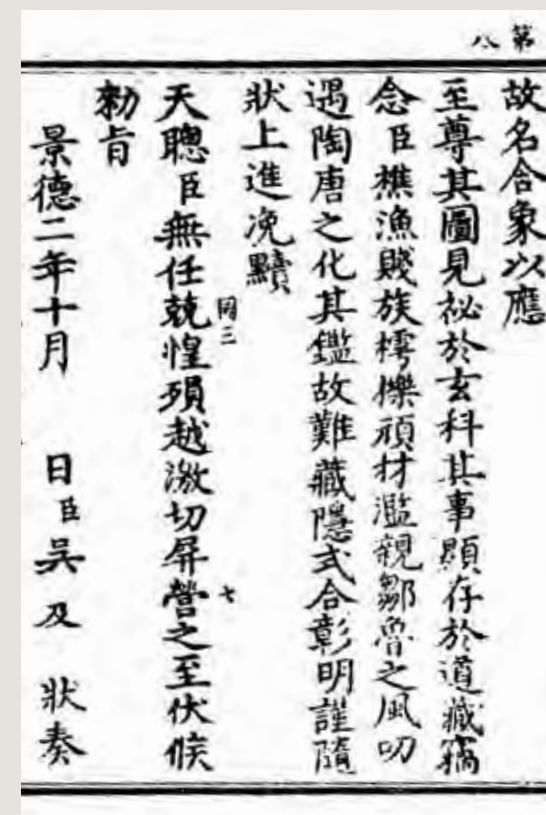 第八
故名合象以應
至尊其圖見祕於玄科其事顯存於道藏竊
念臣樵漁賤族樗櫟頑材濫親鄒魯之風叨
遇陶唐之化其鑑故難藏隱式合彰明謹隨
狀上進冼黷
天聰臣無任兢惶殞越激切屏營之至伏候
同三
七
勑旨
景德二年十月 日臣吳及 狀奏